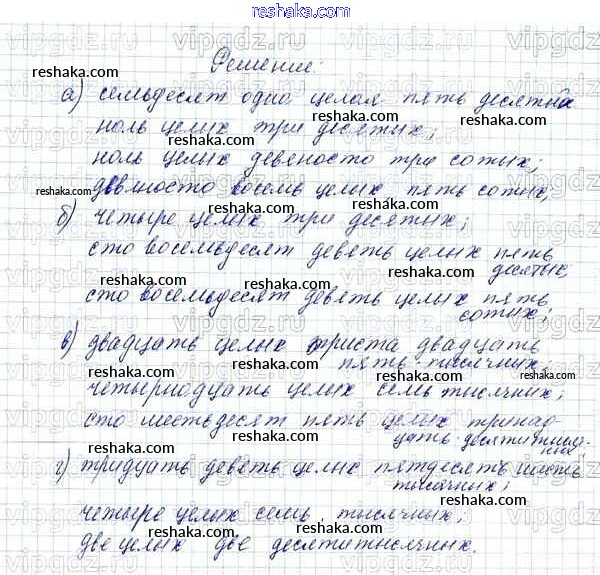 reshaka.com
Решение:
а) семьдесят одно целая пять десятых
ноль целых три десятых;
ноль целых девяносто три сотых;
девяносто восемь целых пять сотых;
б) четыре целых три десятых;
сто восемьдесят девять целых пять
десятых
сто восемьдесят девять целых пять
сотых;
в) двадцать целых триста двадцать
пять тысячных;
четырнодцать целых семь тысячных;
сто шестьдесят пять целых тринад
цать десятитысяч-
ных
г) тридцать девять целых пятдесять шесть
тысячных;
четыре целых семь тысячных;
две целых две десятитысячных.